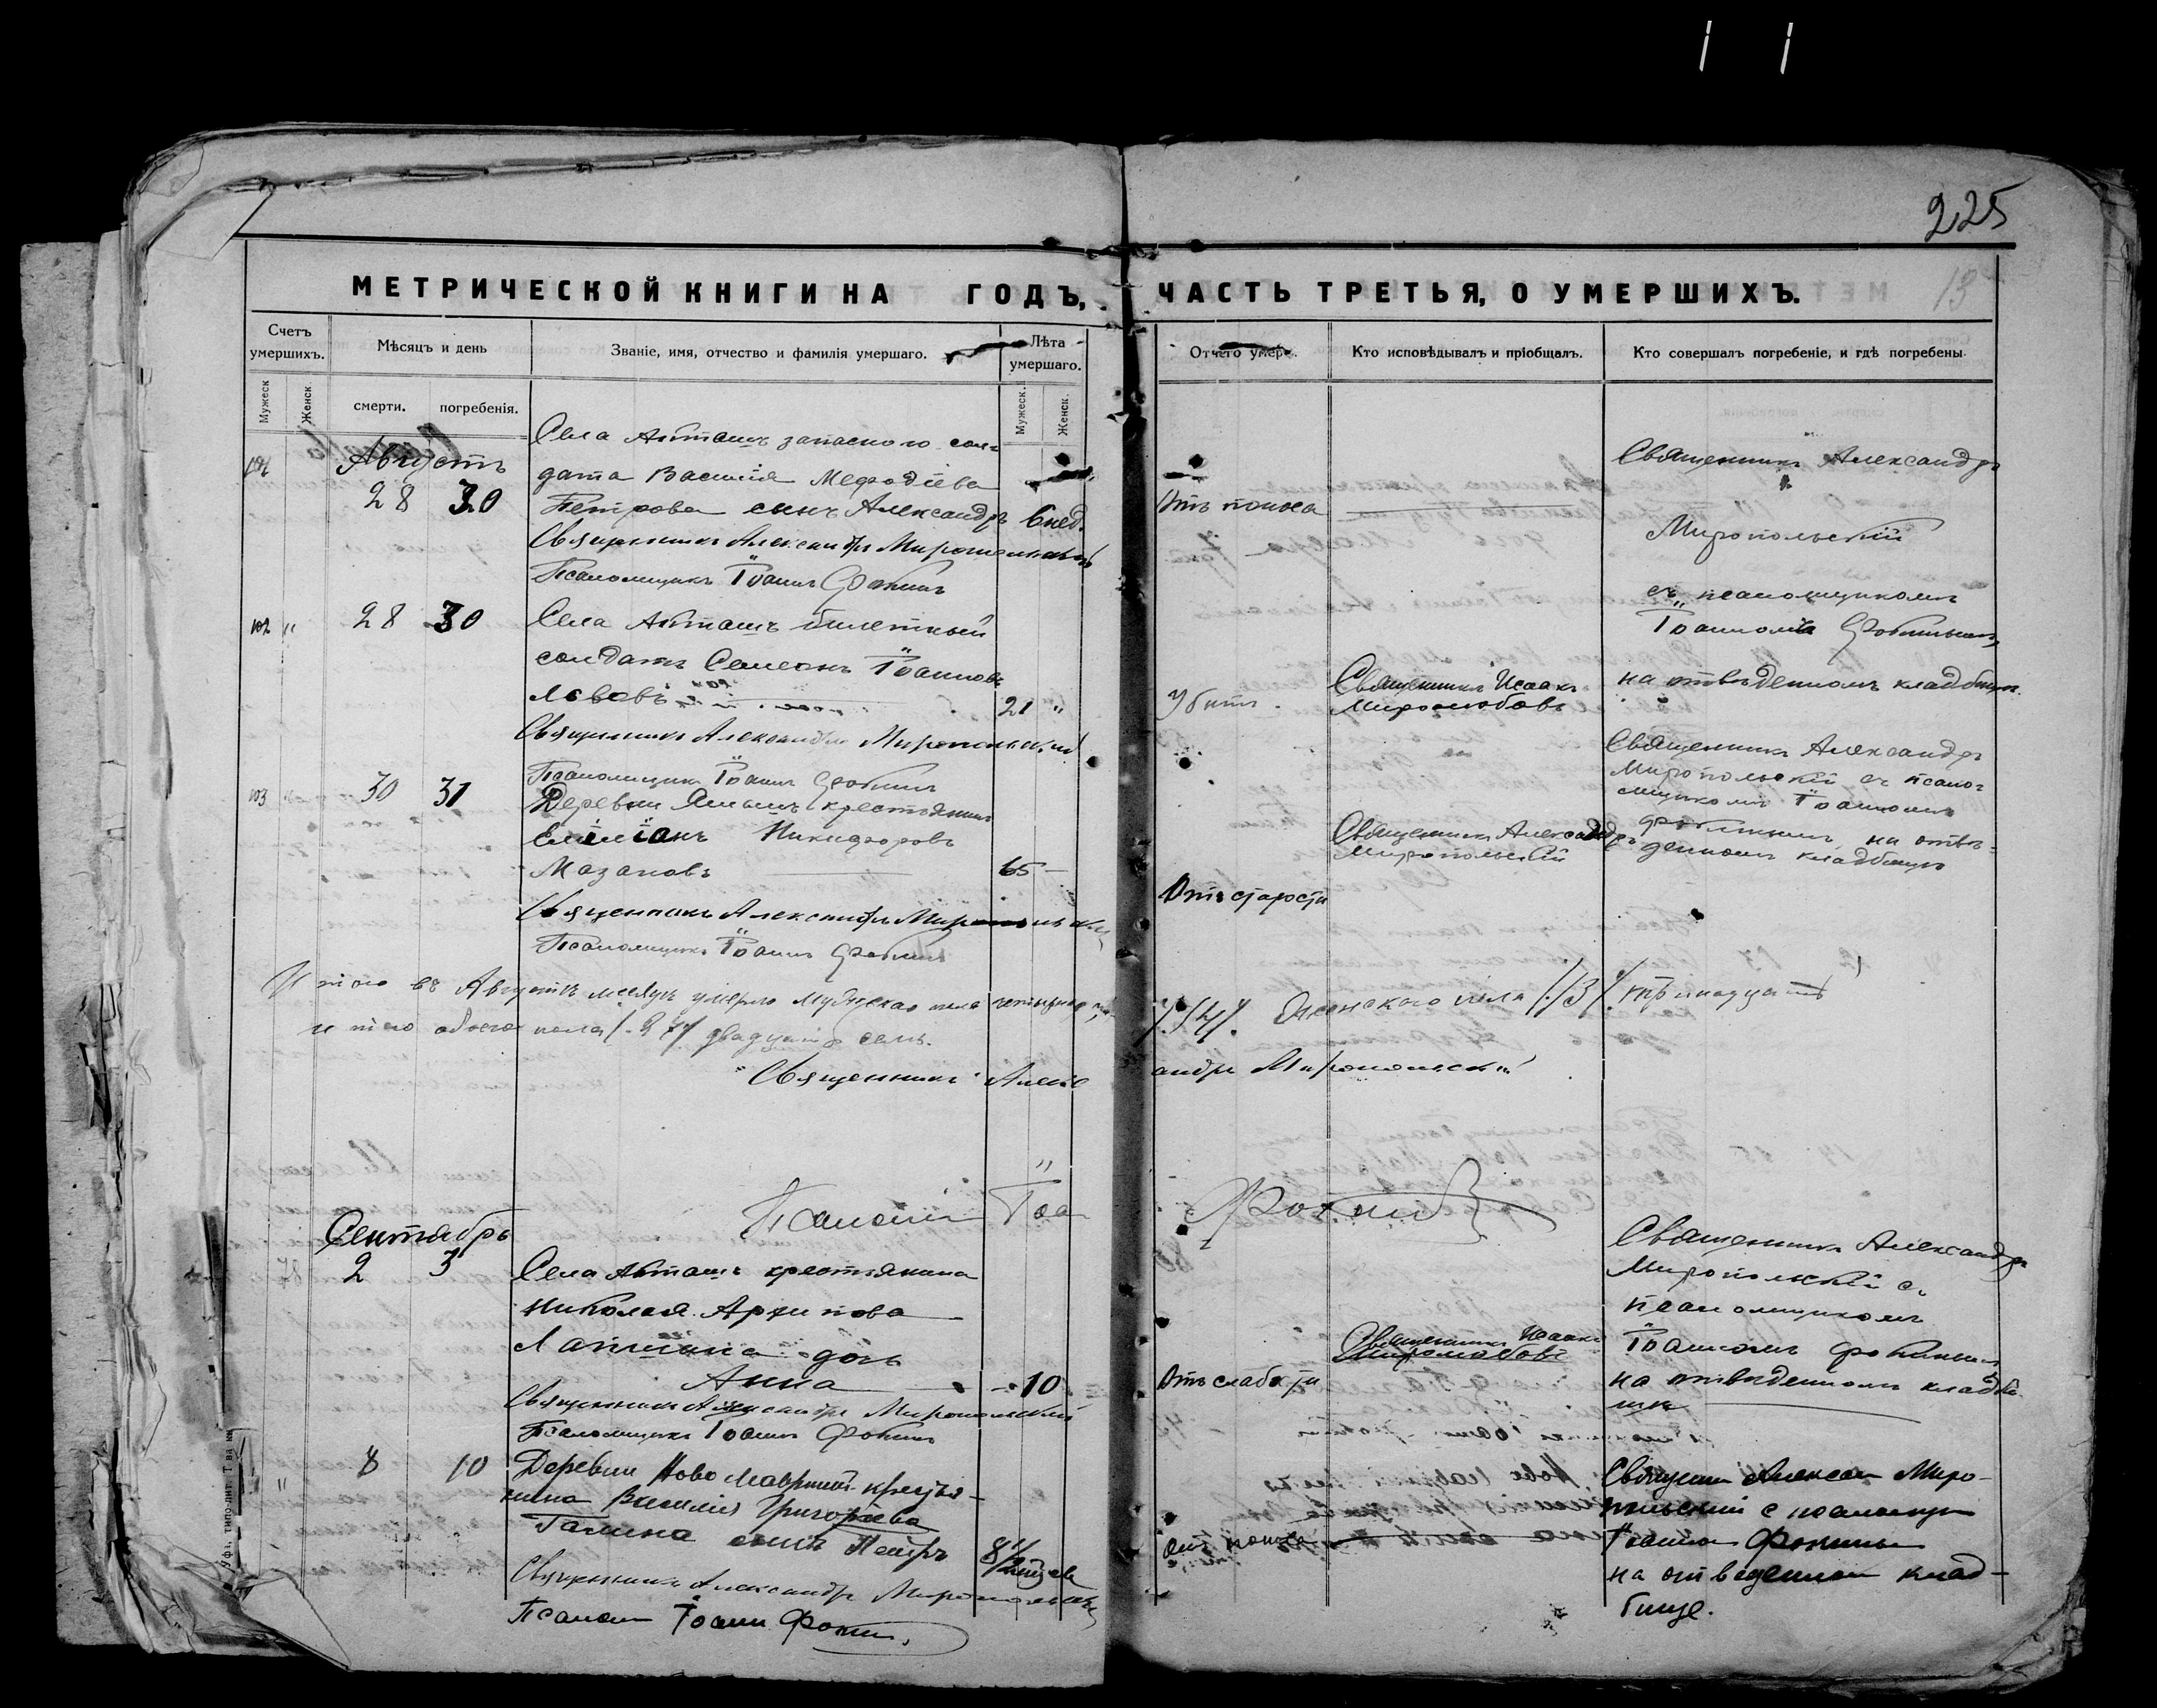 225
13
МЕТРИЧЕСКОЙ КНИГИ НА ГОДЪ, ЧАСТЬ ТРЕТЬЯ, О УМЕРШИХЪ.
Счетъ умершихъ.
Мѣсяцъ и день
Званіе, имя, отчество и фамилія умершаго.
Лѣта умершаго.
Отчего умеръ.
Кто исповѣдывалъ и пріобщалъ.
Кто совершалъ погребеніе, и гдѣ погребены.
Мужеск
Женск
смерти.
погребенія.
Мужеск.
Женск.
Августъ
28 30
Села Акташъ запасного сол-
дата Василія Мефодіева
Петрова сынъ Александръ 6 нед.
Отъ поноса
Священникъ Александръ
Миропольскій
съ псаломщикомъ
Іоанномъ Фокинымъ
на отведенномъ кладбищѣ
Священникъ Александръ Миропольскій
Псаломщикъ Іоаннъ Фокинъ
102 " 28 30
Села Акташъ билетный
солдатъ Семенъ Іоанновъ
Львовъ 21 "
Убитъ.
Священникъ Исаакъ
Миролюбовъ
Священникъ Александръ Миропольскій
Псаломщикъ Іоаннъ Фокинъ
103 30 31
Деревни крестьянинъ
Емиліанъ Никифоровъ
Мазановъ 65
Отъ старости
Священникъ Александръ
Миропольскій
Священникъ Александръ
Миропольскій съ псало-
мщикомъ Іоанномъ
Фокинымъ на отве-
денномъ кладбищѣ
Священникъ Александръ Миропольскій
Псаломщикъ Іоаннъ Фокинъ
Итого въ Августѣ мѣсяцѣ умерло мужескаго пола /14/. Женскаго пола /13/ тринадцать
итого обоего пола /27/ двадцать семь.
Священникъ Александръ Миропольскій
Іоа Фокинъ
Сентябрь
2 3
Села Акташъ крестьянина
Николая Архипова
дочь
Анна 10
Отъ слабости
Священникъ Исаакъ
Миролюбовъ
Священникъ Александръ
Миропольскій съ
псаломщикомъ
Іоанномъ Фокинымъ
на отведенномъ кладби-
щѣ
Священникъ Александръ Миропольскій
Псаломщикъ Іоаннъ Фокинъ
" 8 10
Деревни Ново кресть-
янина Василія Григорьева
Галина сынъ Петръ
отъ поноса
Миро-
польскій с
Фокины
на отведенном клад-
бище.
Священникъ Александръ
Псалом Іоанн Фокин.
Уфа, типо-лит. Т-ва